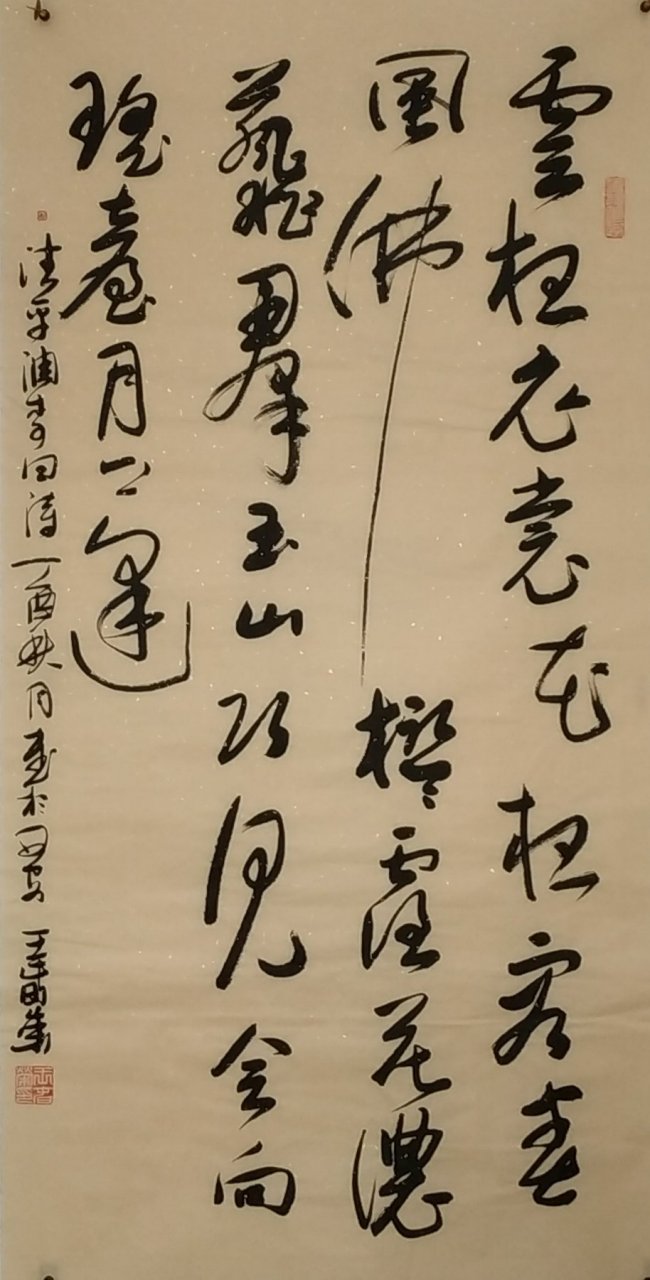 雲想衣裳花想容春
風拂檻露華濃
若非羣玉山頭見会向
瑤臺月下逢
清平調李白詩丁酉秋月書於西安